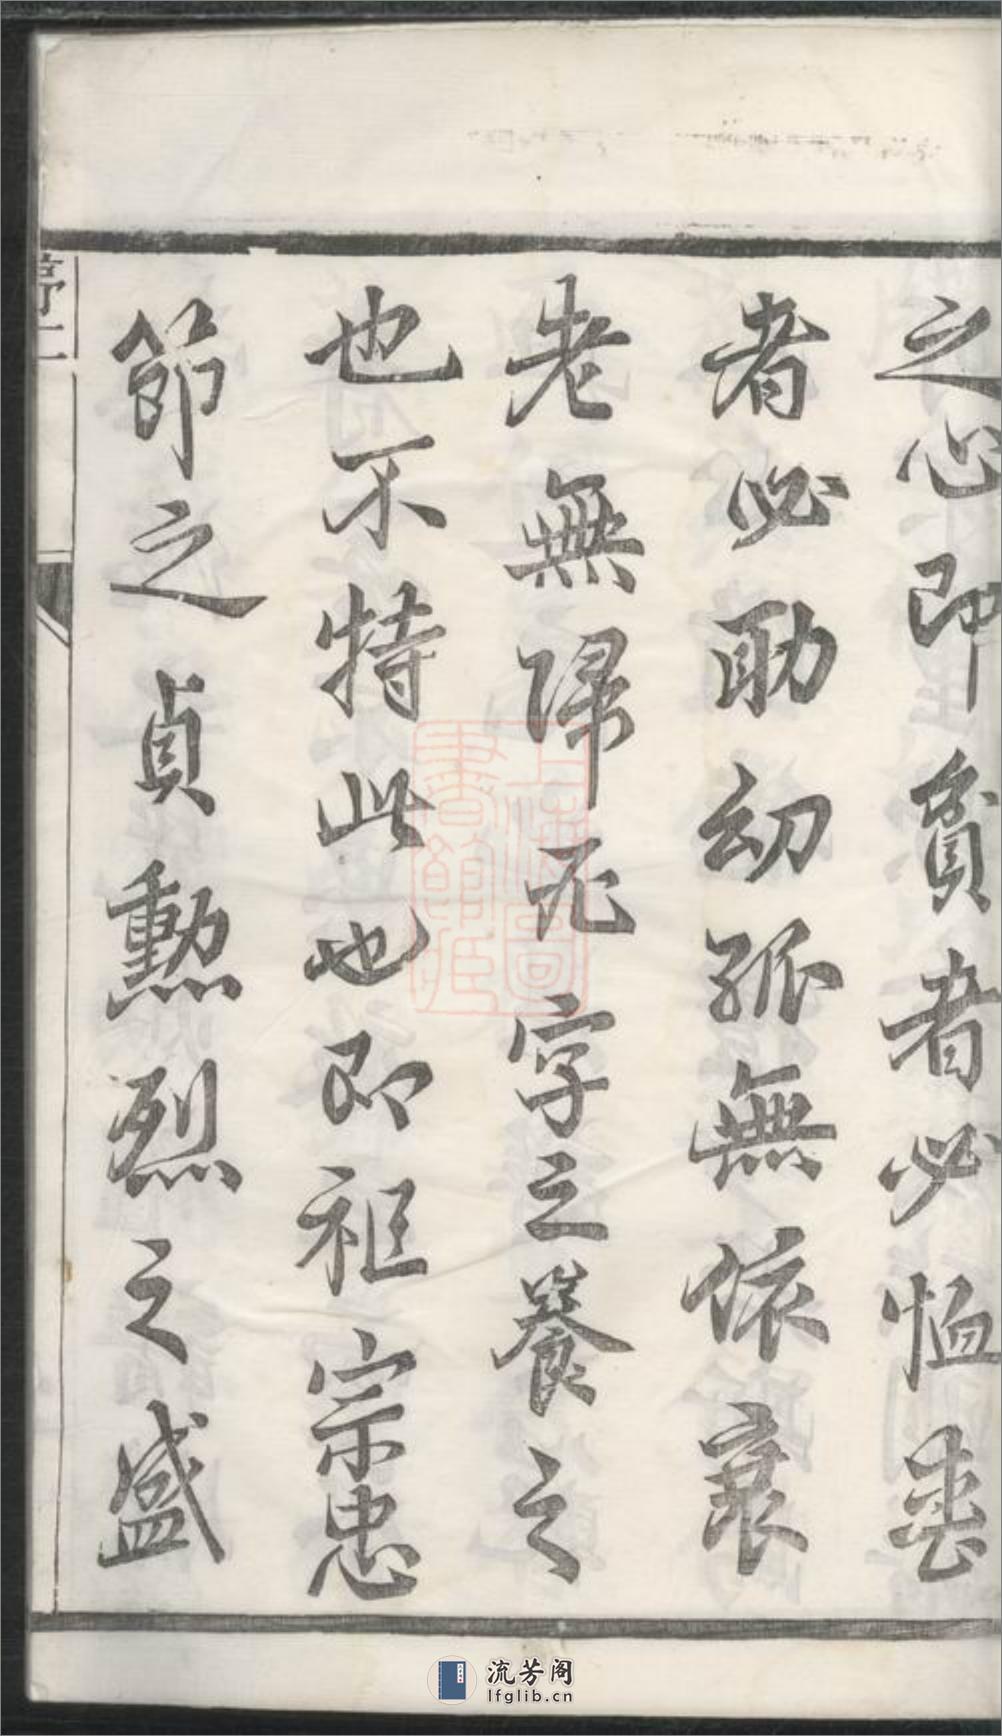 之心即貧者必恤喪
者必助幼孤無依衰
老無歸凡字之養之
也不特此也即祖宗忠
節之貞勳烈之盛
上海圖書館藏
流芳阁
lfglib.cn